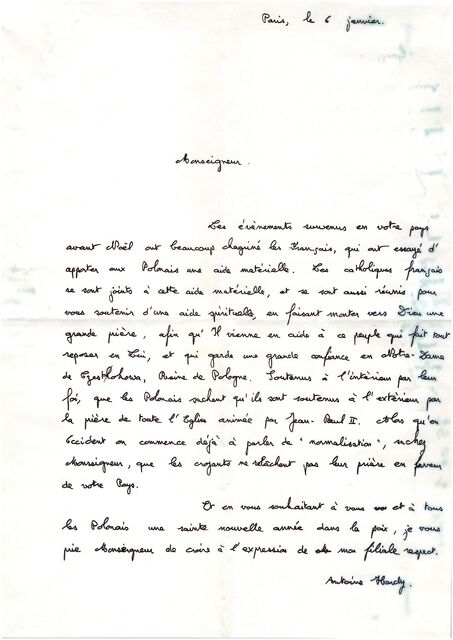 Paris, le 6 janvier.
Monseigneur.
Les évènements survenus en votre pays
avant Noël ont beaucoup chagriné les Français, qui ont essayé d'
apporter aux Polonais une aide matérielle. Les catholiques français
se sont joints à cette aide matérielle, et se sont aussi réunis pour
vous soutenir d'une aide spirituelle, en faisant monter vers Dieu une
grande prière, afin qu'Il vienne en aide à ce peuple qui fait tout
reposer en Lui, et qui garde une grande confiance en Notre-Dame
de Czestochowa, Reine de Pologne. Soutenus à l'intérieur par leur
foi, que les Polonais sachent qu'ils sont soutenus à l'extérieur par
la prière de toute l'Eglise animée par Jean-Paul II. Alors qu'en
Occident on commence déjà à parler de "normalisation", sachez
Monseigneur, que les croyants ne relâchent pas leur prière en faveur
de votre Pays.
Et en vous souhaitant à vous et à tous
les Polonais une sainte nouvelle année dans la paix, je vous
prie Monseigneur de croire à l'expression de ma filiale respect.
Antoine Hardy.